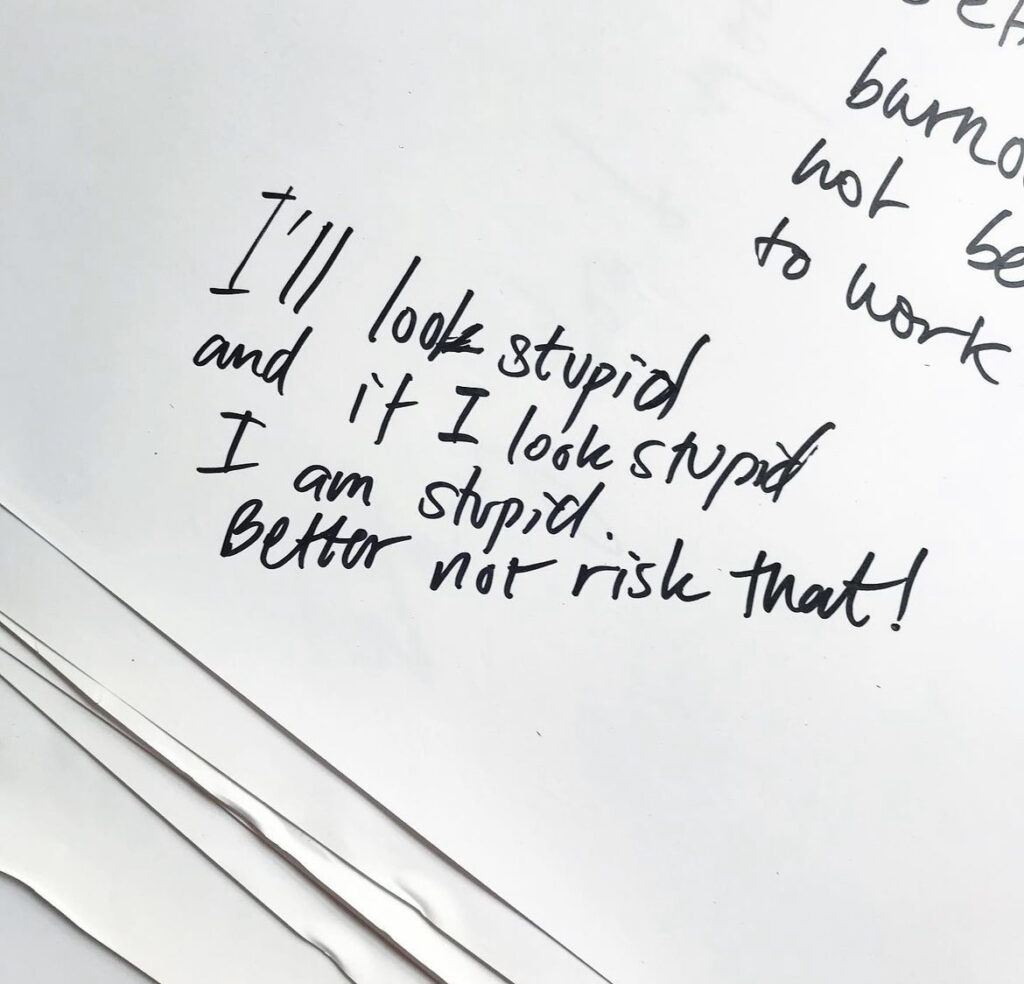 I'll look stupid
and if I look stupid
I am stupid.
Better not risk that!
not be
to work